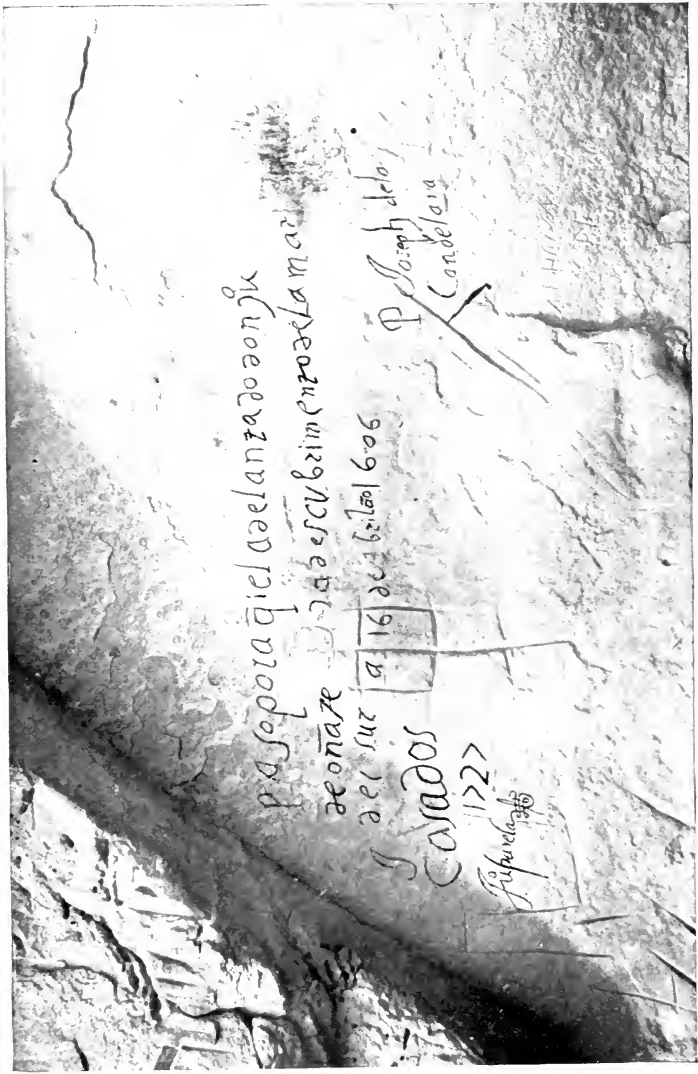 pasoporaq̃ieladelantadodonju
deoñate descubrimentodelamar
delsur a 16 de abril 1606
P Joseph dela
Candelara
J
Casados
1727